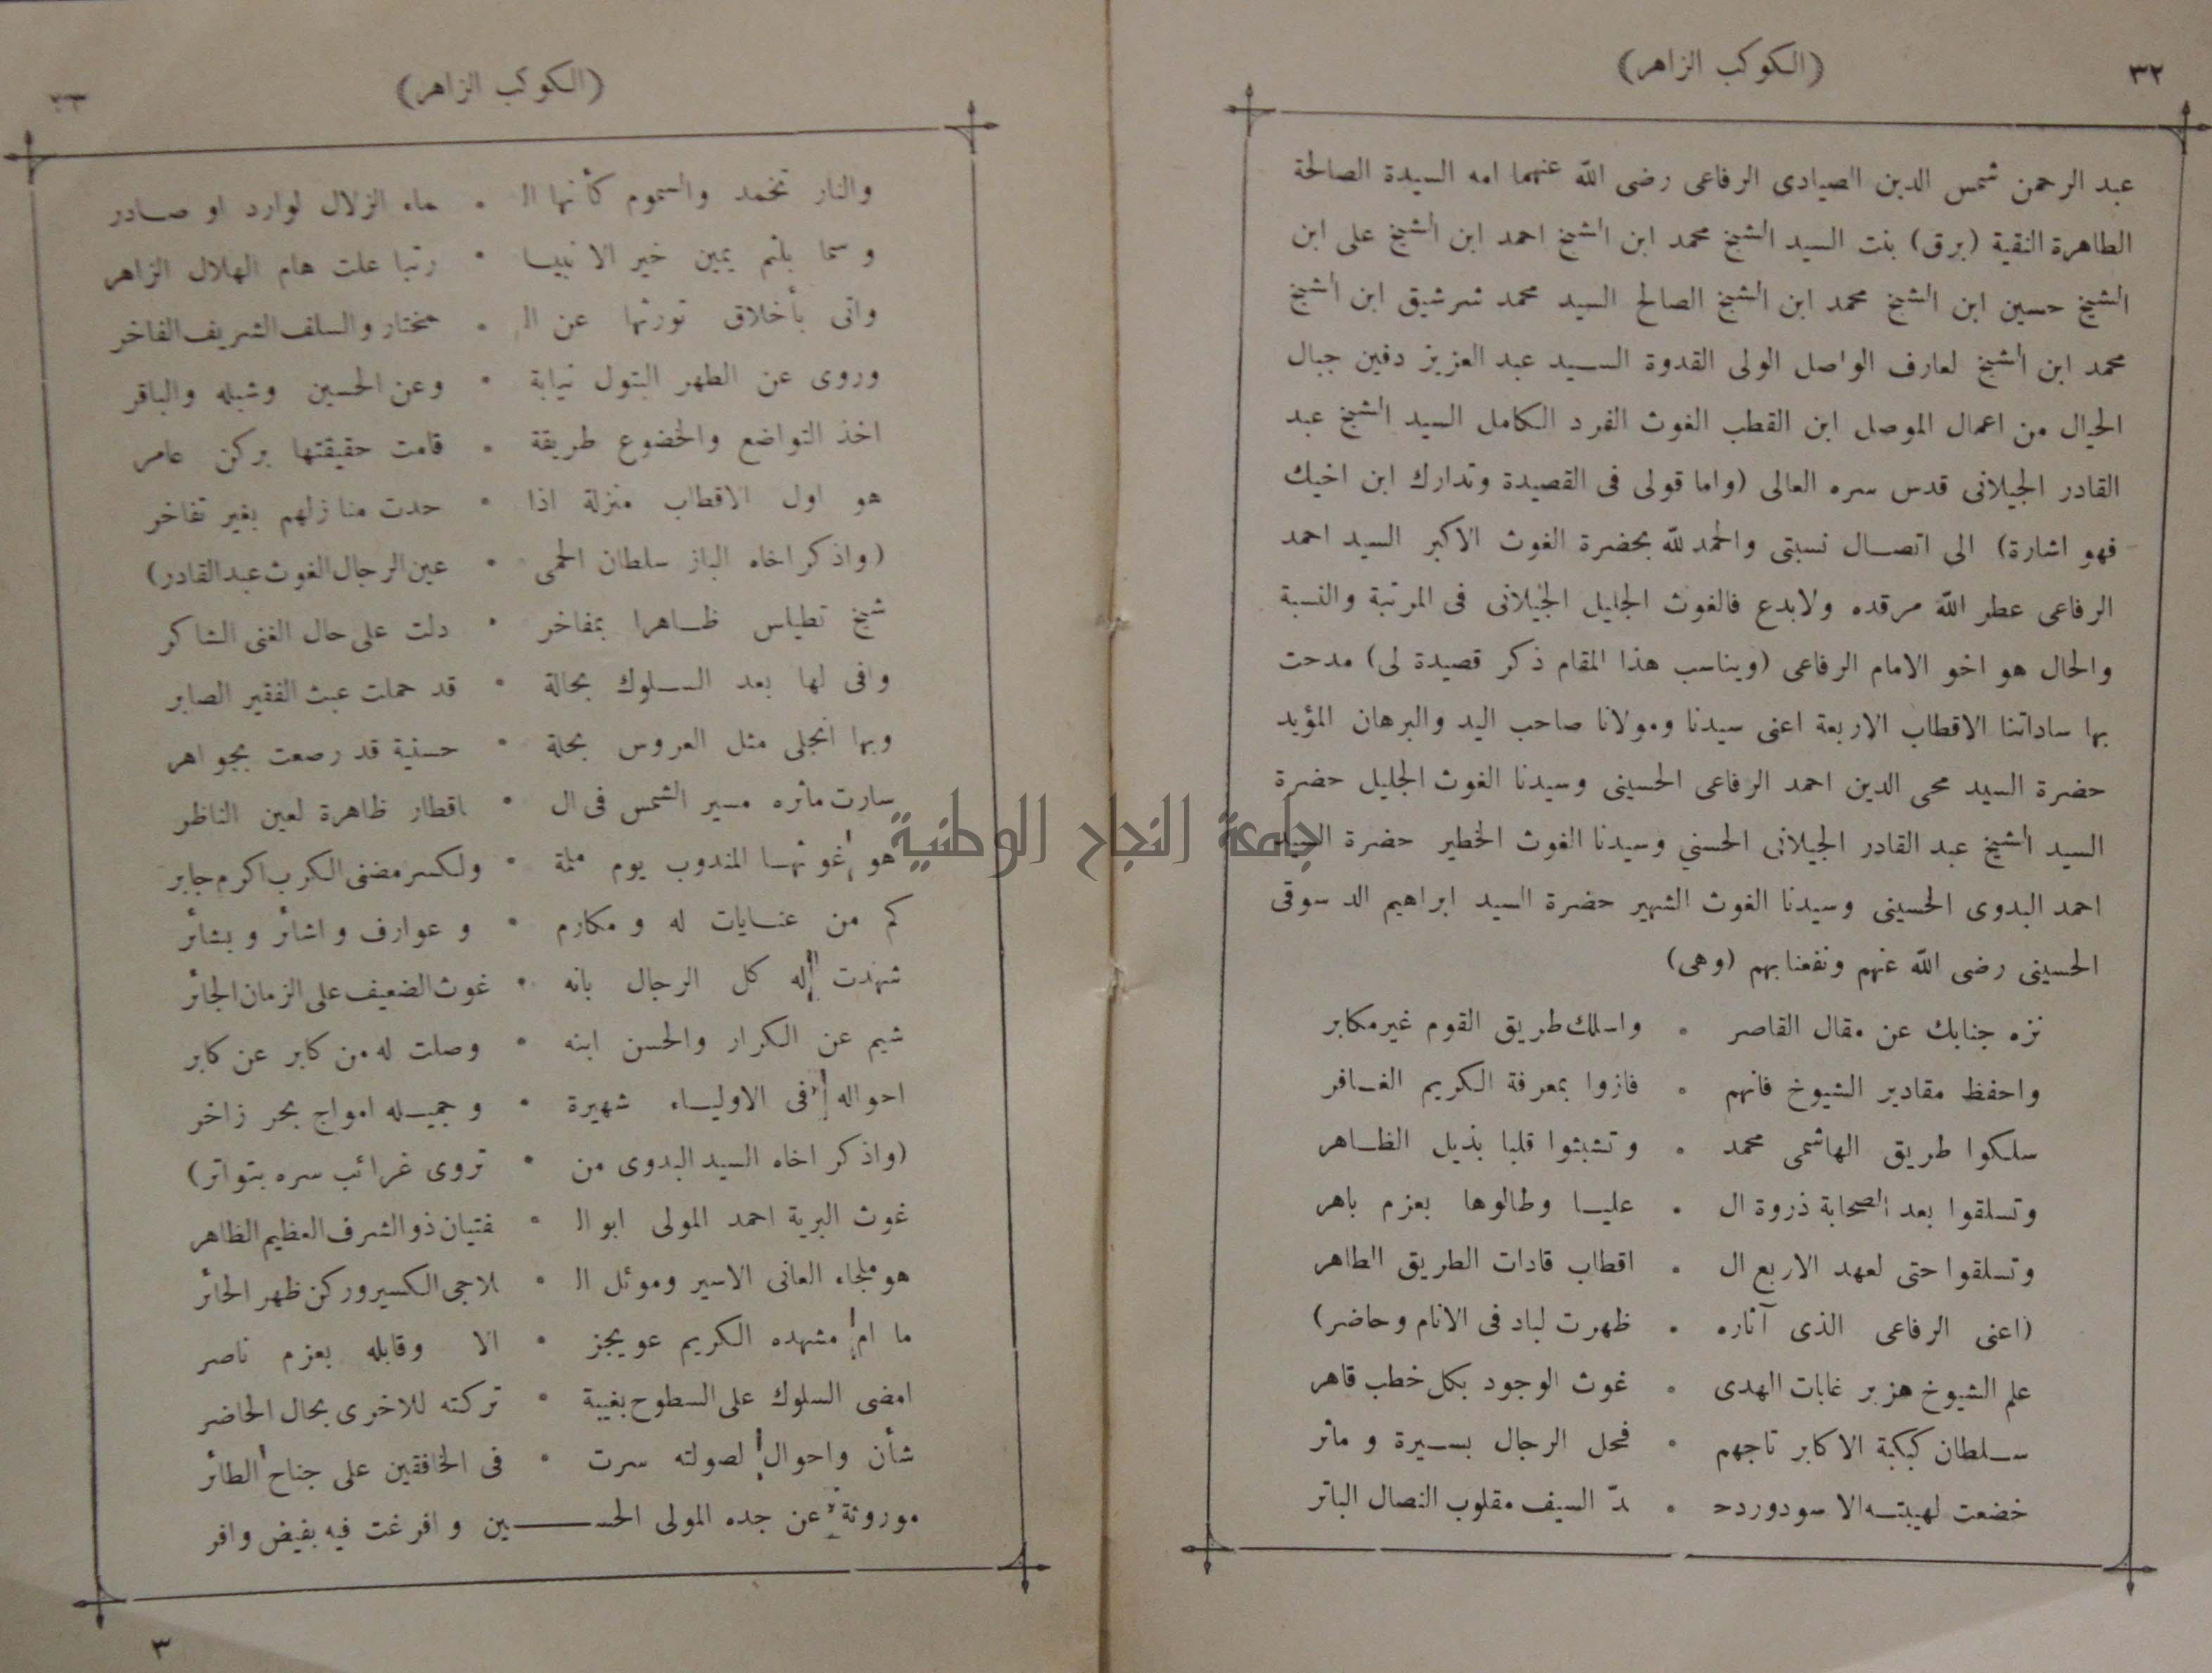 ٣٢
(الكوكب الزاهر)
عبد الرحمن شمس الدين الصيادى الرفاعى رضى الله عنهما امه السيدة الصالحة
الطاهرة النقية (برق) بنت السيد الشيخ محمد ابن الشيخ احمد ابن الشيخ على ابن
الشيخ حسين ابن الشيخ محمد ابن الشيخ الصالح السيد محمد شرشيق ابن الشيخ
محمد ابن الشيخ لعارف الواصل الولى القدوة السيد عبد العزيز دفين جبال
الحيال من اعمال الموصل ابن القطب الغوث الفرد الكامل السيد الشيخ عبد
القادر الجيلانى قدس سره العالى (واما قولى فى القصيدة وتدارك ابن اخيك
فهو اشارة) الى اتصال نسبتى والحمد لله بحضرة الغوث الاكبر السيد احمد
الرفاعى عطر الله مرقده ولابدع فالغوث الجليل الجيلانى فى المرتبة والنسبة
والحال هو اخو الامام الرفاعى (ويناسب هذا المقام ذكر قصيدة لى) مدحت
بها ساداتنا الاقطاب الاربعة اعنى سيدنا ومولانا صاحب اليد والبرهان المؤيد
حضرة السيد محى الدين احمد الرفاعى الحسينى وسيدنا الغوث الجليل حضرة
السيد الشيخ عبد القادر الجيلانى الحسني وسيدنا الغوث الخطير حضرة السيد
احمد البدوى الحسينى وسيدنا الغوث الشهير حضرة السيد ابراهيم الدسوقى
الحسينى رضى الله عنهم ونفعنا بهم (وهى)
نزه جنابك عن مقال القاصر • واسلك طريق القوم غير مكابر
واحفظ مقادير الشيوخ فانهم • فازوا بمعرفة الكريم الغافر
سلكوا طريق الهاشمى محمد • وتشبثوا قلبا بذيل الظاهر
وتسلقوا بعد الصحابة ذروة ال • عليا وطالوها بعزم باهر
وتسلقوا حتى لعهد الاربع ال • اقطاب قادات الطريق الطاهر
(اعنى الرفاعى الذى آثاره • ظهرت لباد فى الانام وحاضر)
علم الشيوخ هزبر غابات الهدى • غوث الوجود بكل خطب قاهر
سلطان كبكبة الاكابر تاجهم • فحل الرجال بسيرة ومآثر
خضعت لهيبته الاسود ورد ح • دّ السيف مقلوب النصال الباتر
جامعة النجاح الوطنية
٣٣
(الكوكب الزاهر)
والنار تخمد والسموم كأنها ال • ماء الزلال لوارد او صادر
وسما بلثم يمين خير الانبيا • رتبا علت هام الهلال الزاهر
واتى بأخلاق تورثها عن ال • مختار والسلف الشريف الفاخر
وروى عن الطهر البتول نيابة • وعن الحسين وشبله والباقر
اخذ التواضع والخضوع طريقة • قامت حقيقتها بركن عامر
هو اول الاقطاب منزلة اذا • حدت منازلهم بغير تفاخر
(واذكر اخاه الباز سلطان الحمى • عين الرجال الغوث عبد القادر)
شيخ تطيلس ظاهرا بمفاخر • دلت على حال الغنى الشاكر
وافى لها بعد السلوك بحالة • قد حملت عبث الفقير الصابر
وبها انجلى مثل العروس بحلة • حسنية قد رصعت بجواهر
سارت مآثره مسير الشمس فى ال • اقطار ظاهرة لعين الناظر
هو غوثها المندوب يوم ملمة • ولكسر مضنى الكرب اكرم جابر
كم من عنايات له ومكارم • وعوارف واشائر وبشائر
شهدت له كل الرجال بانه • غوث الضعيف على الزمان الجائر
شيم عن الكرار والحسن ابنه • وصلت له من كابر عن كابر
احواله فى الاولياء شهيرة • وجميله امواج بحر زاخر
(واذكر اخاه السيد البدوى من • تروى غرائب سره بتواتر)
غوث البرية احمد المولى ابو ال • فتيان ذو الشرف العظيم الظاهر
هو ملجاء العانى الاسير وموئل ال • لاجى الكسير وركن ظهر الحائر
ما ام مشهده الكريم عويجز • الا وقابله بعزم ناصر
امضى السلوك على السطوح بغيبة • تركته للاخرى بحال الحاضر
شأن واحوال لصولته سرت • فى الخافقين على جناح الطائر
موروثة عن جده المولى الحسـين وافرغت فيه بفيض وافر
٣